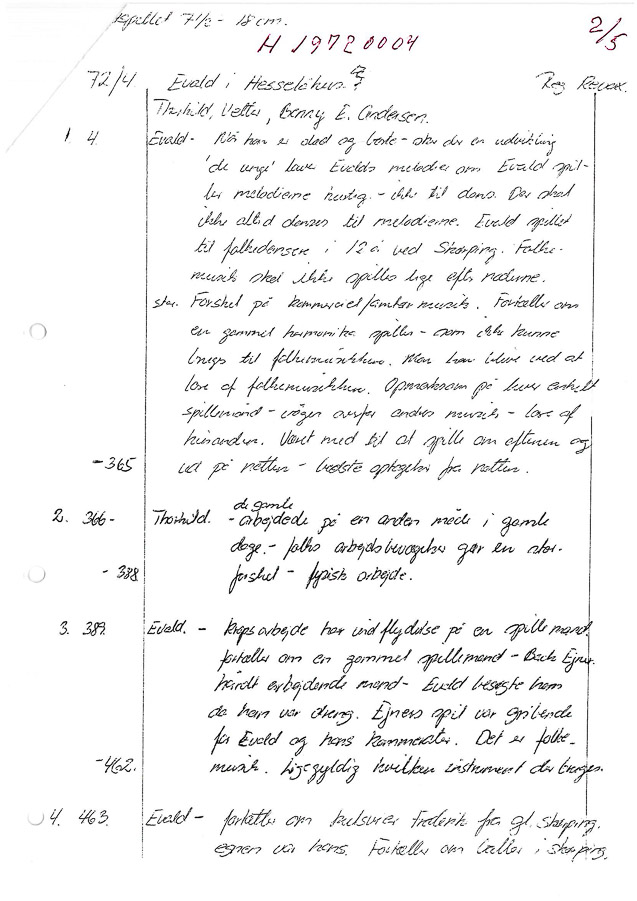 spillet 7 1/2 - 18 cm.
2/5
H 19720004
72/4 Evald i Reg Revox.
Thorhild, Vetter, Benny E. Andersen.
1. 4. Evald - Når han er død og borte - sker der en udvikling
'de unge' laver Evalds melodier om Evald spil-
ler melodierne hurtig - ikke til dans. Der skal
ikke altid danses til melodierne. Evald spillet
til folkedansere i 12 år ved Skørping. Folke-
musik skal ikke spilles lige efter noderne.
Forskel på kommerciel/amatør musik. Fortæller om
en gammel harmonika spiller - som ikke kunne
bruges til folkemusikken. Man kan blive ved at
lære af folkemusikken. Opmærksom på hver enkelt
spillemand - vågen overfor andres musik - lære af
hinanden. Været med til at spille om aftenen og
-365 ud på natten - bedste optagelser fra natten.
2. 366- Thorhild. de gamle - arbejdede på en anden måde i gamle
dage. - folks arbejdsbevægelser gør en stor
-388 forskel - fysisk arbejde.
3. 389. Evald. - Kropsarbejde har indflydelse på en spillemand.
fortæller om en gammel spillemand - Bæk Ejner.
hårdt arbejdende mand - Evald besøgte ham
da han var dreng. Ejners spil var gribende
for Evald og hans kammerater. Det er folke-
-462. musik. Ligegyldig hvilken instrument der bruges.
4. 463. Evald - fortæller om Frederik fra gl. Skørping.
egnen var hans. Fortæller om baller i Skørping.